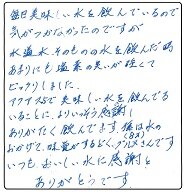 毎日美味しい水を飲んでいるので
気がつかなかったのですが
水道水そのものの水を飲んだ時
あまりにも塩素の臭いが強くて
ビックリしました。
アクアスで美味しい水を飲んでる
いることに、よりいっそう感謝し
ありがたく飲んでます 猫は水の
おかげで、味覚がするどく、グルメさんです
いつもおいしい水に感謝を
ありがとうです